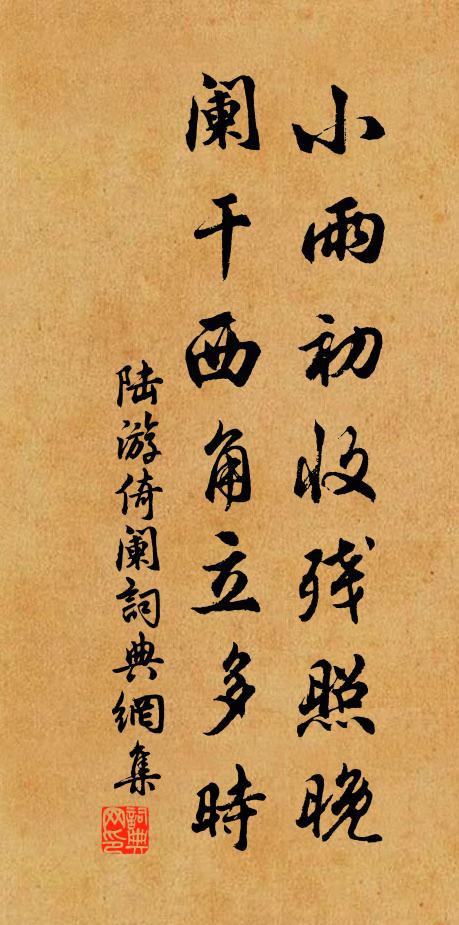 小雨初收残照晚
阑干西角立多時
陆游倚阑詞典網集
詞典网印